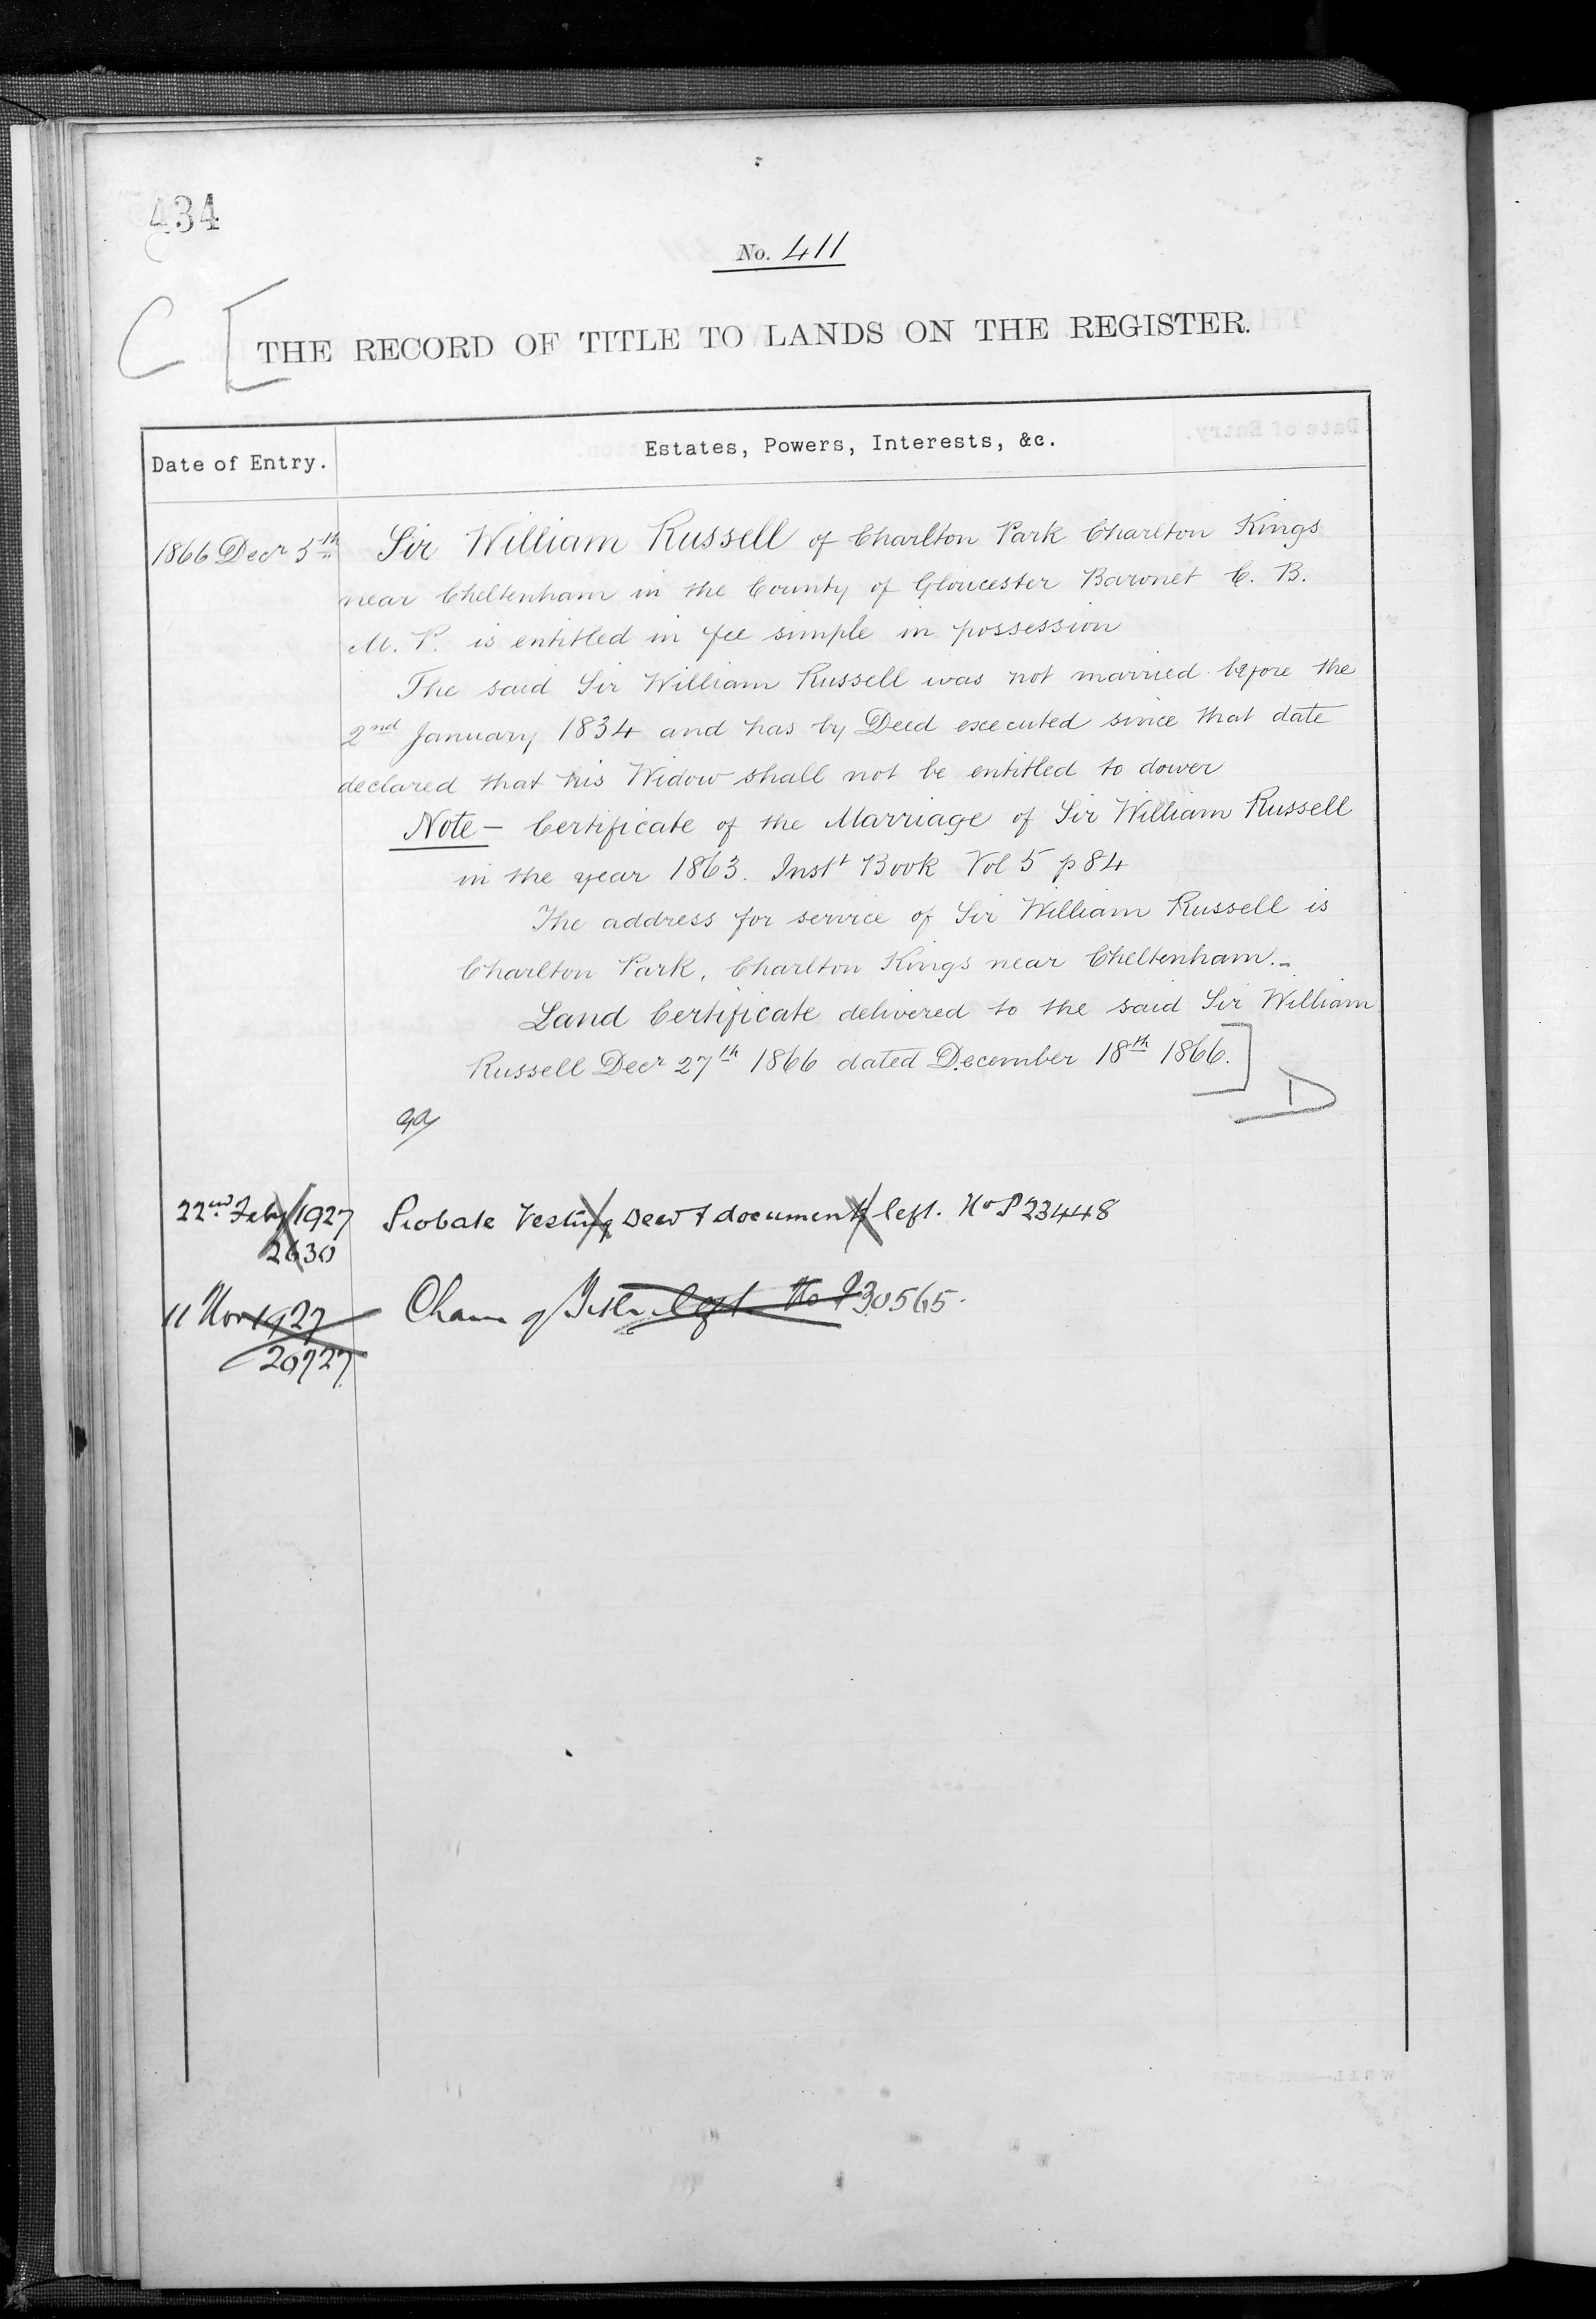 434
No. 411
C [
THE RECORD OF TITLE TO LANDS ON THE REGISTER.
Date of Entry.
Estates, Powers, Interests, &c.
1866 Decr 5th
Sir William Russell of Charlton Park Charlton Kings
near Cheltenham in the County of Gloucester Baronet C. B.
M. P. is entitled in fee simple in possession
The said Sir William Russell was not married before the
2nd January 1834 and has by Deed executed since that date
declared that his Widow shall not be entitled to dower
Note - Certificate of the Marriage of Sir William Russell
in the year 1863. Inst Book Vol 5 p 84
The address for service of Sir William Russell is
Charlton Park, Charlton Kings near Cheltenham.-
Land Certificate delivered to the said Sir William
Russell Decr 27th 1866 dated December 18th 1866.]
D
22nd Feby 1927
Probate Vesting Deed & documents left. No P 23448
2630
11 Nov 1927
of left. No P 30565.
20727